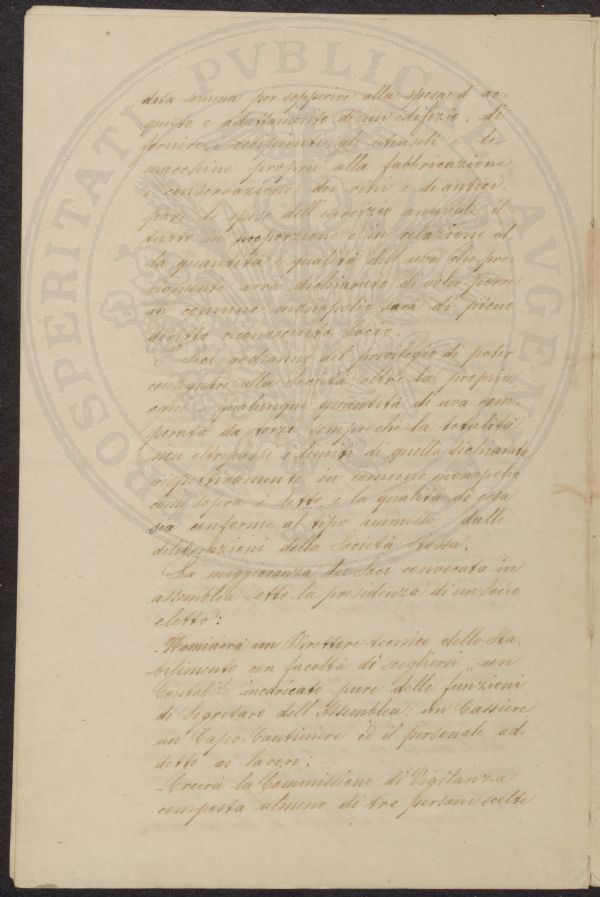 data somma per sopperire alla spesa d'ac-
quisto e adattamento di un edifizio, di
fornire i recipienti, gli utensili e le
macchine proprii alla fabbricazione
e conservazione dei vini e di antici-
pare le spese dell'esercizio annuale, il
tutto in proporzione e in relazione al
la quantità e qualità dell'uva che pre
ventivamente avrà dichiarato di voler porre
in comune monopolio sarà di pieno
diritto riconosciuto socio.
I Soci godranno del privilegio di poter
consegnare alla Società oltre la propria
uva qualunque quantità di uva com-
perata da terzi sempreché la totalità
non oltrepassi i limiti di quella dichiarata
rispettivamente in comune monopolio
come sopra è detto, e la qualità di essa
sia conforme al tipo ammesso dalle
deliberazioni della Società stessa.
La maggioranza dei Soci convocata in
assemblea sotto la presidenza di un Socio
eletto:
- Nominerà un Direttore tecnico dello Sta-
bilimento con facoltà di scegliersi un
Contabile incaricato pure delle funzioni
di Segretaro dell'Assemblea, un Cassiere
un Capo Cantiniere ed il personale ad-
detto ai lavori;
- Creerà la Commissione di Vigilanza
composta almeno di tre persone scelte
PROSPERITATI PVBLICAE AVGENDAE